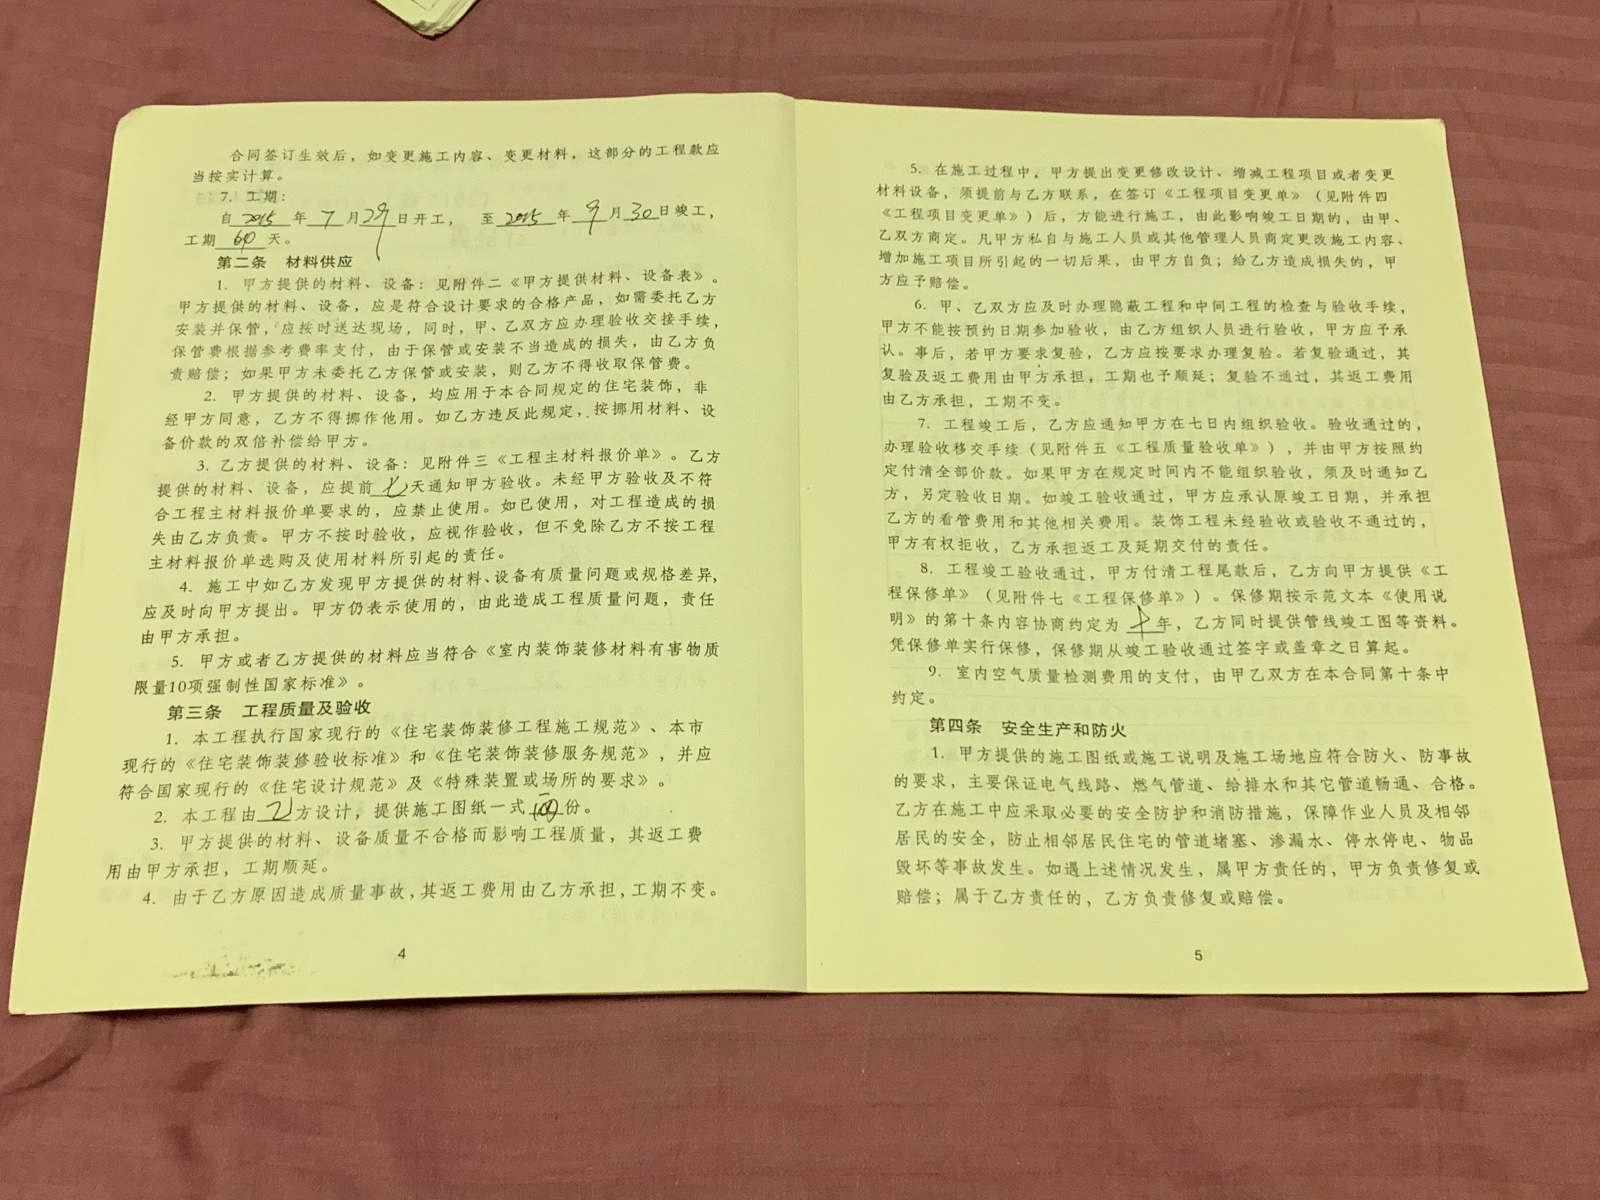 合同签订生效后，如变更施工内容、变更材料，这部分的工程款应
当按实计算。
7. 工期：
自2015年7月29日开工，  至2015年9月30日竣工，
工期60天。
第二条  材料供应
1. 甲方提供的材料、设备：见附件二《甲方提供材料、设备表》。
甲方提供的材料、设备，应是符合设计要求的合格产品，如需委托乙方
安装并保管，应按时送达现场，同时，甲、乙双方应办理验收交接手续，
保管费根据参考费率支付，由于保管或安装不当造成的损失，由乙方负
责赔偿；如果甲方未委托乙方保管或安装，则乙方不得收取保管费。
2. 甲方提供的材料、设备，均应用于本合同规定的住宅装饰，非
经甲方同意，乙方不得挪作他用。如乙方违反此规定，按挪用材料、设
备价款的双倍补偿给甲方。
3. 乙方提供的材料、设备：见附件三《工程主材料报价单》。乙方
提供的材料、设备，应提前七天通知甲方验收。未经甲方验收及不符
合工程主材料报价单要求的，应禁止使用。如已使用，对工程造成的损
失由乙方负责。甲方不按时验收，应视作验收，但不免除乙方不按工程
主材料报价单选购及使用材料所引起的责任。
4. 施工中如乙方发现甲方提供的材料、设备有质量问题或规格差异，
应及时向甲方提出。甲方仍表示使用的，由此造成工程质量问题，责任
由甲方承担。
5. 甲方或者乙方提供的材料应当符合《室内装饰装修材料有害物质
限量10项强制性国家标准》。
第三条  工程质量及验收
1. 本工程执行国家现行的《住宅装饰装修工程施工规范》、本市
现行的《住宅装饰装修验收标准》和《住宅装饰装修服务规范》，并应
符合国家现行的《住宅设计规范》及《特殊装置或场所的要求》。
2. 本工程由乙方设计，提供施工图纸一式四份。
3. 甲方提供的材料、设备质量不合格而影响工程质量，其返工费
用由甲方承担，工期顺延。
4. 由于乙方原因造成质量事故，其返工费用由乙方承担，工期不变。
4
5. 在施工过程中，甲方提出变更修改设计、增减工程项目或者变更
材料设备，须提前与乙方联系，在签订《工程项目变更单》（见附件四
《工程项目变更单》）后，方能进行施工，由此影响竣工日期的，由甲、
乙双方商定。凡甲方私自与施工人员或其他管理人员商定更改施工内容、
增加施工项目所引起的一切后果，由甲方自负；给乙方造成损失的，甲
方应予赔偿。
6. 甲、乙双方应及时办理隐蔽工程和中间工程的检查与验收手续，
甲方不能按预约日期参加验收，由乙方组织人员进行验收，甲方应予承
认。事后，若甲方要求复验，乙方应按要求办理复验。若复验通过，其
复验及返工费用由甲方承担，工期也予顺延；复验不通过，其返工费用
由乙方承担，工期不变。
7. 工程竣工后，乙方应通知甲方在七日内组织验收。验收通过的，
办理验收移交手续（见附件五《工程质量验收单》），并由甲方按照约
定付清全部价款。如果甲方在规定时间内不能组织验收，须及时通知乙
方，另定验收日期。如竣工验收通过，甲方应承认原竣工日期，并承担
乙方的看管费用和其他相关费用。装饰工程未经验收或验收不通过的，
甲方有权拒收，乙方承担返工及延期交付的责任。
8. 工程竣工验收通过，甲方付清工程尾款后，乙方向甲方提供《工
程保修单》（见附件七《工程保修单》）。保修期按示范文本《使用说
明》的第十条内容协商约定为年，乙方同时提供管线竣工图等资料。
凭保修单实行保修，保修期从竣工验收通过签字或盖章之日算起。
9. 室内空气质量检测费用的支付，由甲乙双方在本合同第十条中
约定。
第四条  安全生产和防火
1. 甲方提供的施工图纸或施工说明及施工场地应符合防火、防事故
的要求，主要保证电气线路、燃气管道、给排水和其它管道畅通、合格。
乙方在施工中应采取必要的安全防护和消防措施，保障作业人员及相邻
居民的安全，防止相邻居民住宅的管道堵塞、渗漏水、停水停电、物品
毁坏等事故发生。如遇上述情况发生，属甲方责任的，甲方负责修复或
赔偿；属于乙方责任的，乙方负责修复或赔偿。
5